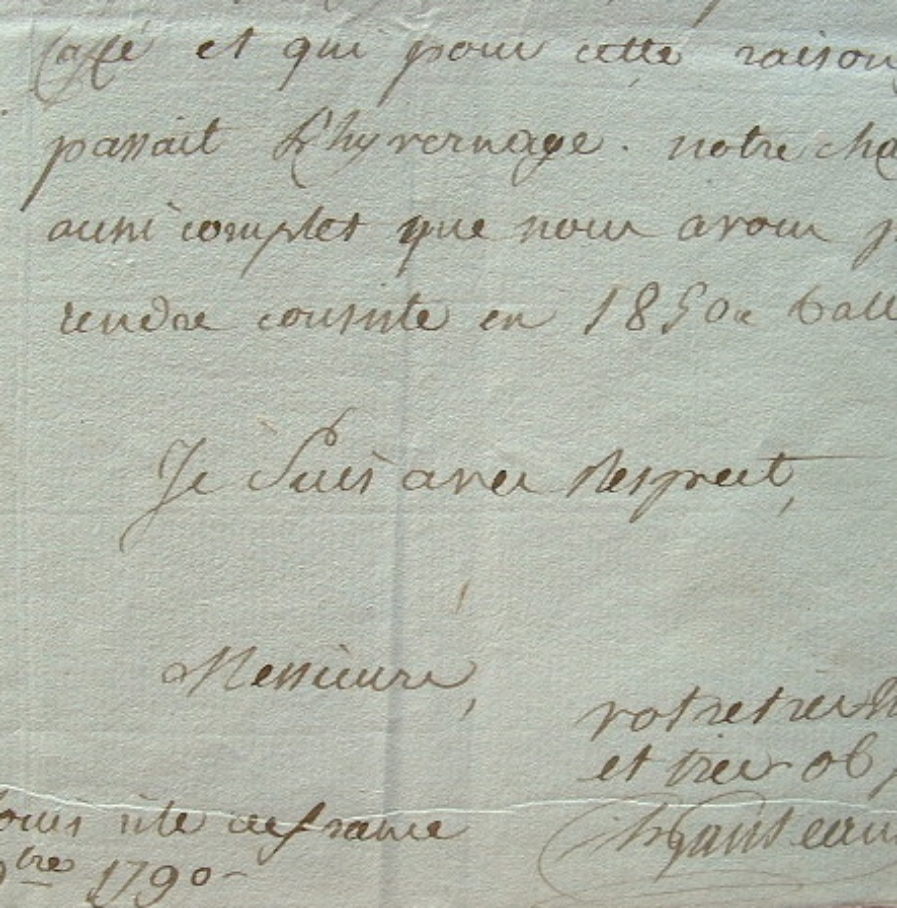 Caffé et qui pour cette raison
passait L'hyvernage. notre cha
aussi complet que nous avons p
rendre consiste en 1850 ball
Je Suis avec Respect,
Messieurs,
votre tres h
et tres ob
louis isle de france
bre 1790